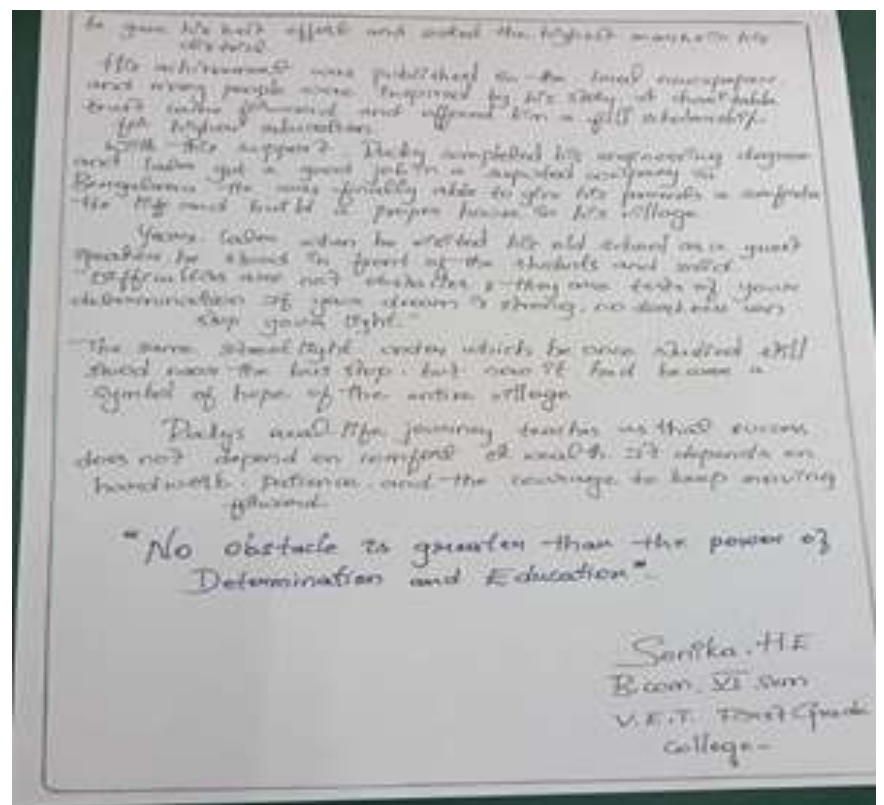 he gave his best effort and scored the highest marks in his
district
His achievement was published in the local newspaper
and many people were inspired by his story. A charitable
trust came forward and offered him a full scholarship
for higher education
With this support, completed his engineering degree
and later got a good job in a reputed company in
Bengaluru. He was finally able to give his parents a
the life and build a proper house in his village
Years later when he visited his old school as a guest
speaker he stood in front of the students and said
"Difficulties are not obstacles, they are tests of your
determination if your dream is strong, no darkness can
stop your light."
The same street light under which he once studied still
stood near the bus stop. but now it had become a
symbol of hope of the entire village
real life journey teaches us that success
does not depend on comfort or wealth. It depends on
hardwork, patience, and the courage to keep moving
forward.
"No obstacle is greater than the power of
Determination and Education".
Sonika. H.E
B.com. VI sem
V.E.T. First Grade
College-